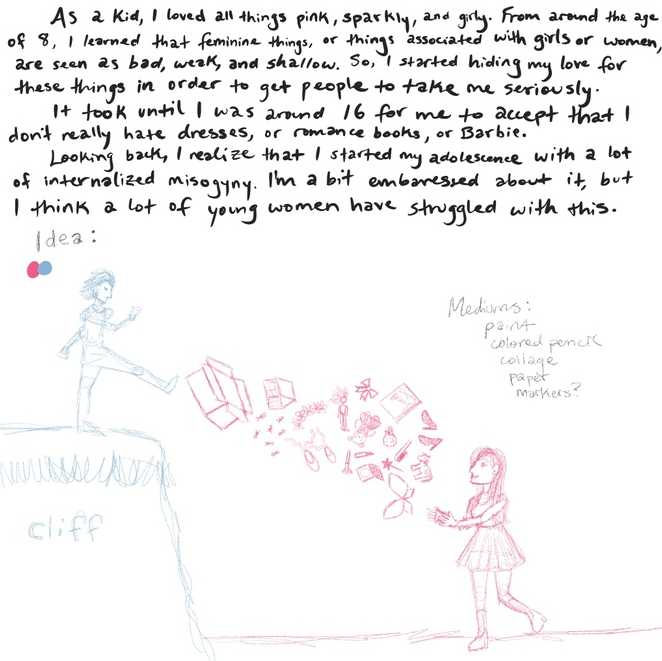 As a kid, I loved all things pink, sparkly, and girly. From around the age
of 8, I learned that feminine things, or things associated with girls or women,
are seen as bad, weak, and shallow. So, I started hiding my love for
these things in order to get people to take me seriously.
It took until I was around 16 for me to accept that I
don't really hate dresses, or romance books, or Barbie.
Looking back, I realize that I started my adolescence with a lot
of internalized misogyny. I'm a bit embaressed about it, but
I think a lot of young women have struggled with this.
Idea:
Mediums:
paint
colored pencil
collage
paper
markers?
cliff